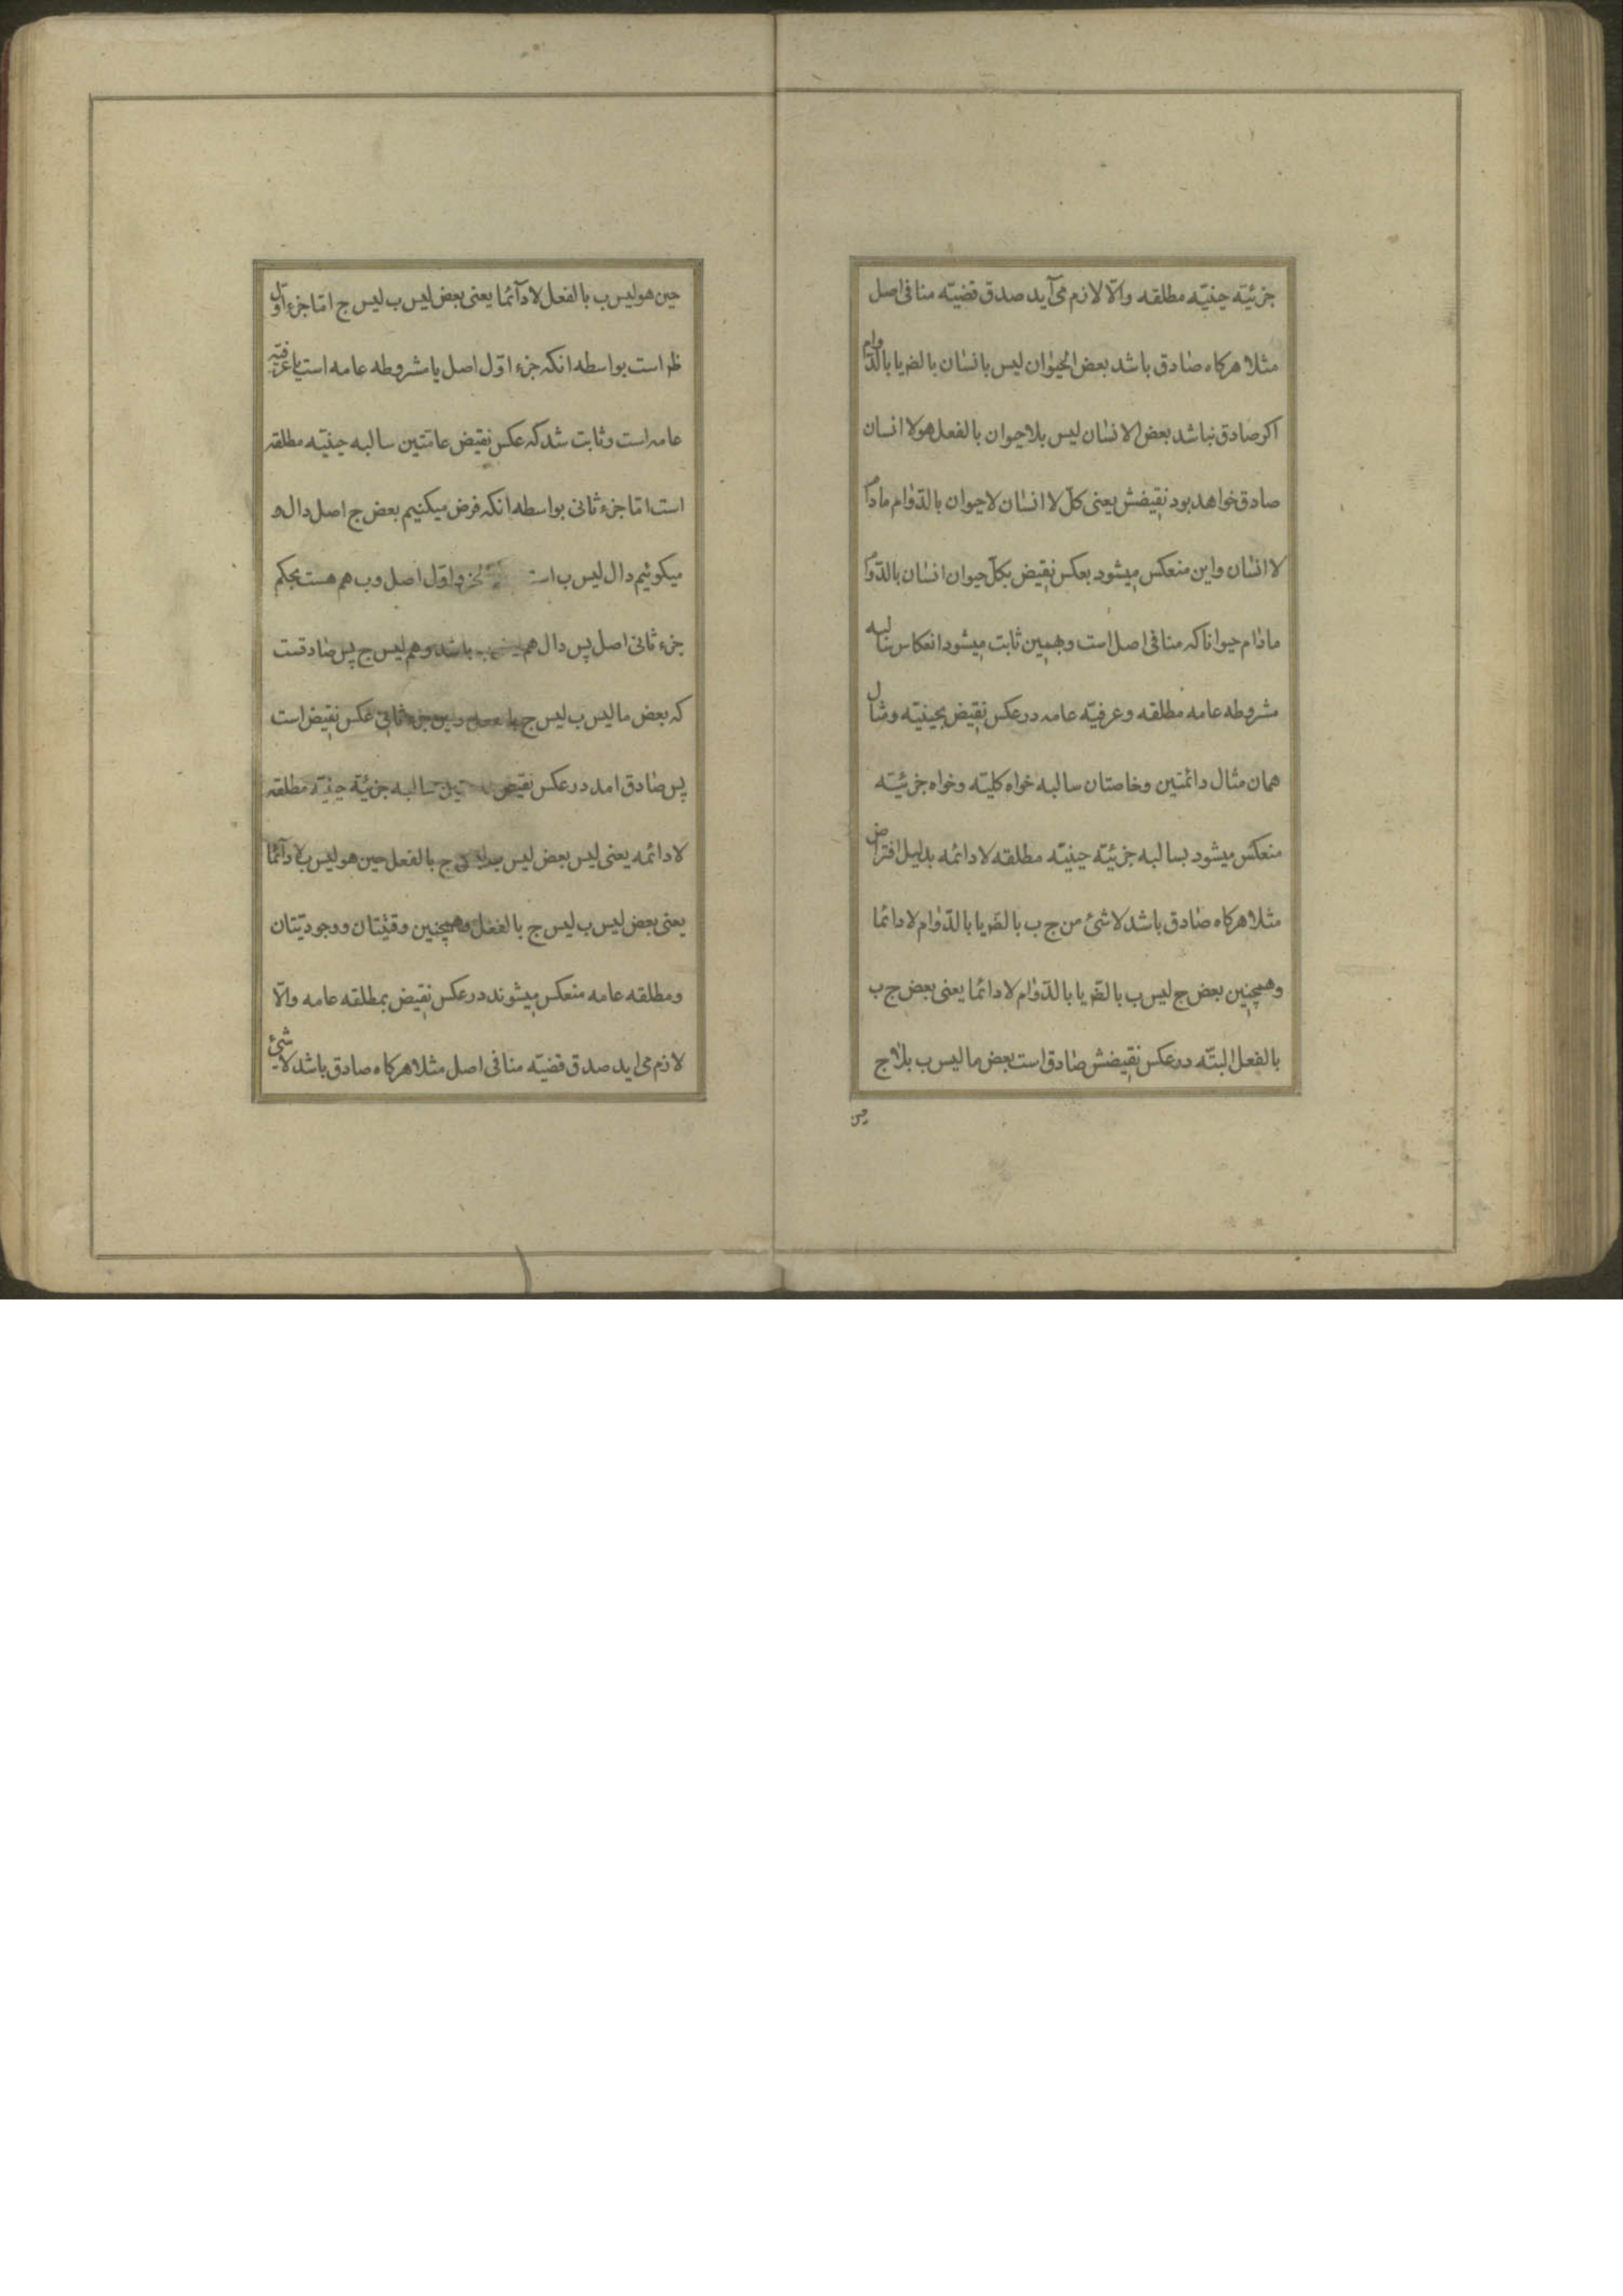 جزئیّه حینیّه مطلقه والّا لازم می‌آید صدق قضیّه منافی اصل
مثلا هرکاه صادق باشد بعض الحیوان لیس بانسان بالضر یا بالدّوام
اکر صادق نباشد بعض الانسان لیس بلاحیوان بالفعل هو لا انسان
صادق خواهد بود نقیضش یعنی کلّ لا انسان لاحیوان بالدّوام مادام
لا انسان واین منعکس میشود بعکس نقیض بکلّ حیوان انسان بالدّوام
مادام حیوانا که منافی اصل است وهمین ثابت میشود انعکاس سالبه
مشروطه عامه مطلقه وعرفیّه عامه در عکس نقیض بحینیّه ومثال
همان مثال دائمتین وخاصتان سالبه خواه کلیّه وخواه جزئیّه
منعکس میشود بسالبه جزئیّه حینیّه مطلقه لادائمه بدلیل افتراض
مثلا هرکاه صادق باشد لاشئ من ج ب بالضر یا بالدّوام لادائما
وهمچنین بعض ج لیس ب بالضر یا بالدّوام لادائما یعنی بعض ج ب
بالفعل البتّه در عکس نقیضش صادق است بعض ما لیس ب بلاج
حین
حین هو لیس ب بالفعل لادآئما یعنی بعض لیس ب لیس ج امّا جزء اوّل
ظر است بواسطه انکه جزء اوّل اصل یا مشروطه عامه است یا عرفیّه
عامه است وثابت شد که عکس نقیض عامّتین سالبه حینیّه مطلقه
است امّا جزء ثانی بواسطه انکه فرض میکنیم بعض ج اصل دال و
میکوئیم دال لیس ب است جزو اوّل اصل وب هم هست بحکم
جزء ثانی اصل پس دال هم لیس ب باشد وهم لیس ج پس صادقست
که بعض ما لیس ب لیس ج بالفعل واین جزء ثانی عکس نقیض است
پس صادق امد در عکس نقیض سالبه جزئیّه حینیّه مطلقه
لادائمه یعنی لیس بعض لیس ج بالفعل حین هو لیس ب لادآئما
یعنی بعض لیس ب لیس ج بالفعل وهمچنین وقتیّتان ووجودیّتان
ومطلقه عامه منعکس میشوند در عکس نقیض بمطلقه عامه والّا
لازم می‌اید صدق قضیّه منافی اصل مثلا هرکاه صادق باشد لاشئ